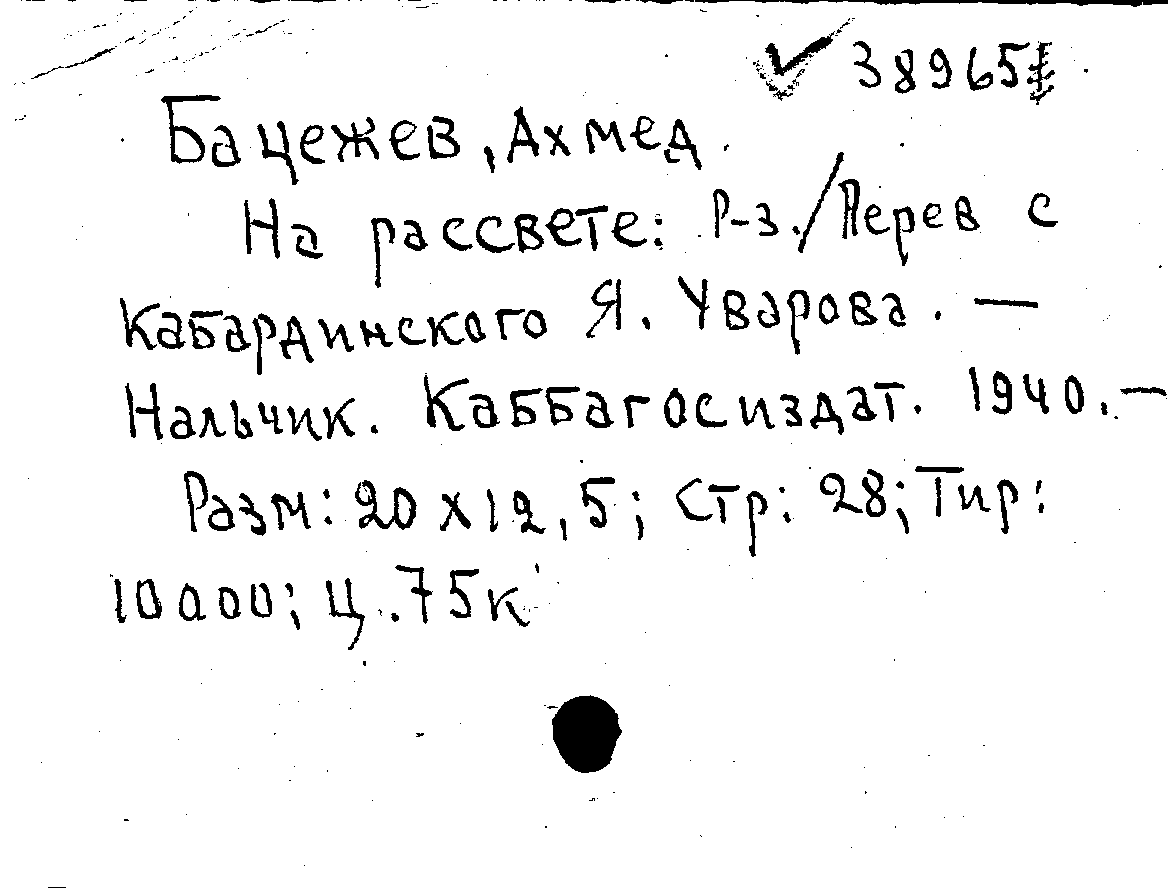 38965
Бацежев, Ахмед.
На рассвете: Р-з./Перев с
кабардинского Я. Уварова. —
Нальчик. Каббагосиздат. 1940. —
Разм: 20 х 12, 5; Стр: 28; Тир:
10000; Ц. 75к